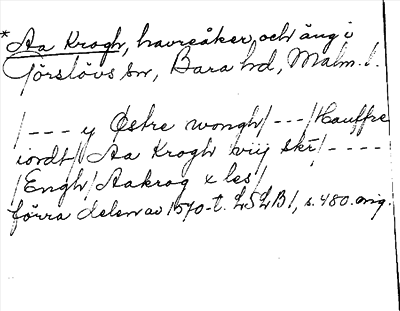 * Aa Krogh, havreåker och äng i
Görslövs sn, Bara hd, Malm. l.
/--- y Østre wongh/---/Hauffre
iordt/Aa Krogh viij skr/----
/Engh/Aakrog x les/
förra delen av 1570-t. LSLB1, s. 480. orig.